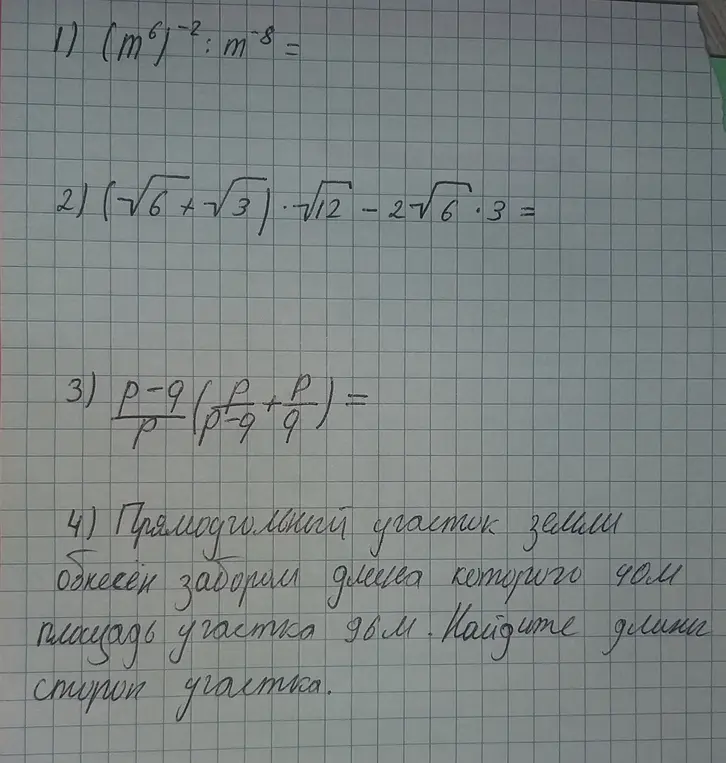 1) (m⁶)⁻² : m⁻⁸ =
2) (√6 + √3) · √12 − 2√6 · 3 =
3) (p−q)/p (p/(p−q) + p/q) =
4) Прямоугольный участок земли
обнесён забором длина которого 40м
площадь участка 96м. Найдите длины
сторон участка.